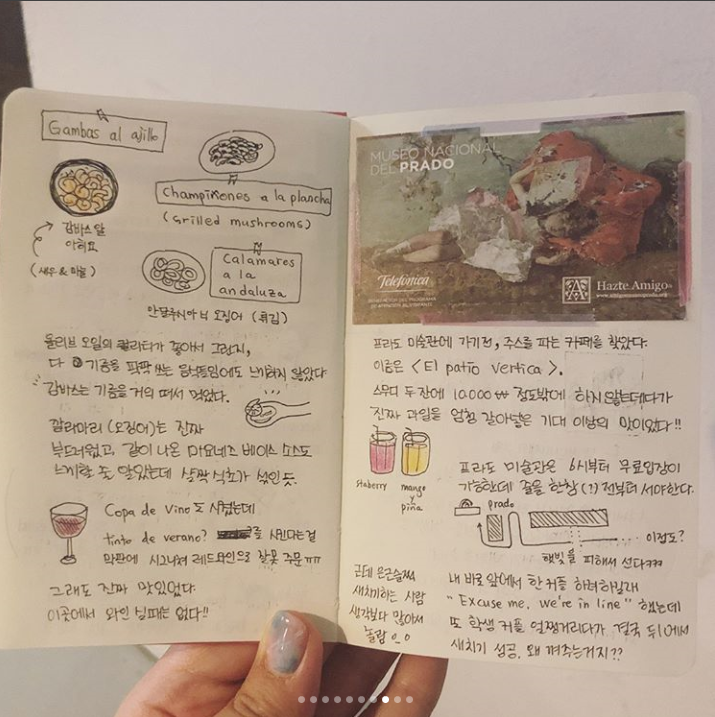 Gambas al ajillo
감바스 알
아히요
(새우 & 마늘)
Champiñones a la plancha
(Grilled mushrooms)
Calamares
a la
andaluza
안달루시아식 오징어 (튀김)
올리브 오일의 퀄리티가 좋아서 그런지,
다 기름을 팍팍 쓰는 음식들임에도 느끼하지 않았다
감바스는 기름을 거의 떠서 먹었다.
깔라마리 (오징어)는 진짜
부드러웠고, 같이 나온 마요네즈 베이스 소스도
느끼할 줄 알았는데 살짝 식초가 섞인 듯.
Copa de Vino도 시켰는데
tinto de verano? 를 시킨다는걸
막판에 시그니쳐 레드와인으로 잘못 주문 ㅠㅠ
그래도 진짜 맛있었다.
이곳에서 와인 실패는 없다!!
MUSEO NACIONAL
DEL PRADO
Telefónica
Hazte Amigo
프라도 미술관에 가기전, 주스를 파는 카페를 찾았다.
이름은 < El patio vertica >.
스무디 두 잔에 10,000 ₩ 정도밖에 하지 않는데다가
진짜 과일을 엄청 갈아넣은 기대 이상의 맛이었다!!
staberry
mango
y
piña
프라도 미술관은 6시부터 무료입장이
가능한데 줄을 한참(?) 전부터 서야한다.
prado
이정도?
햇빛을 피해서 선다ㅋㅋㅋ
근데 은근슬쩍
새치기하는 사람
생각보다 많아서
놀람 ㅇ_ㅇ
내 바로 앞에서 한 커플 하려하길래
"Excuse me, we're in line" 했는데
또 학생 커플 얼쩡거리다가 결국 뒤에서
새치기 성공. 왜 껴주는거지??